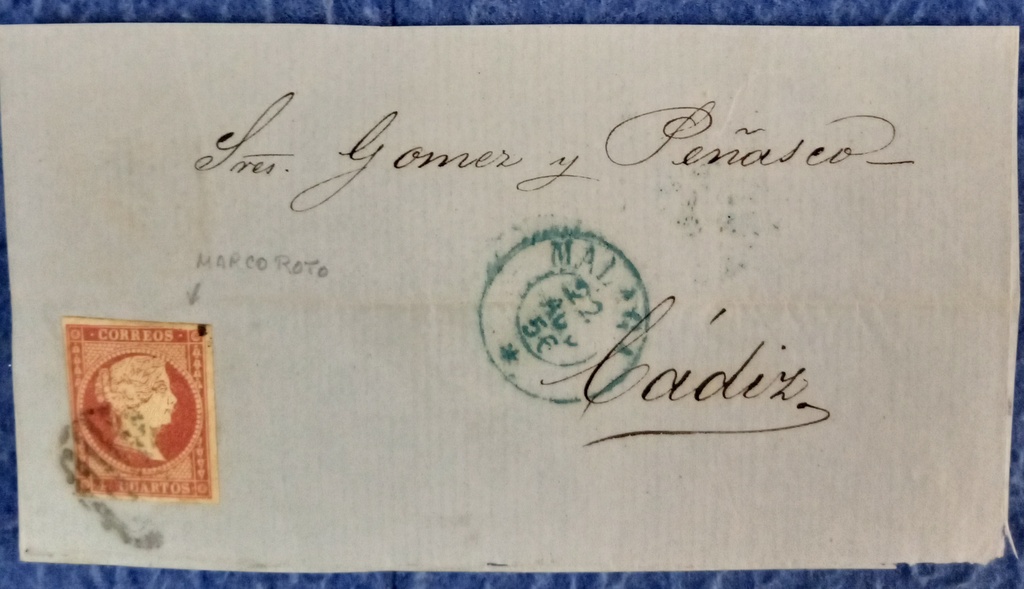 Sres. Gomez y Peñasco
MARCO ROTO
CORREOS
CUARTOS
MALAGA
22
Cádiz